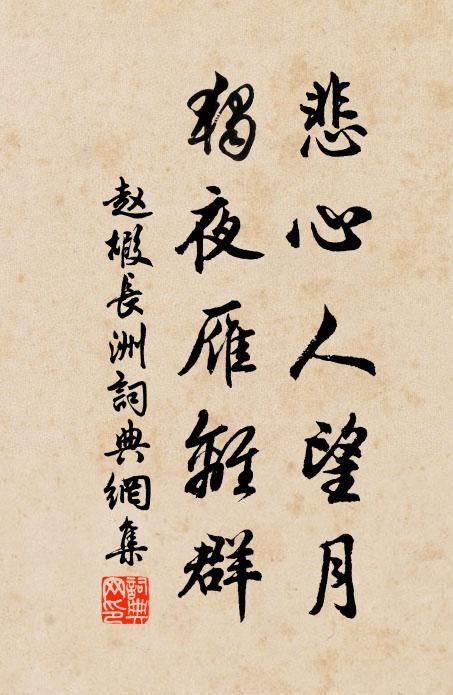 悲心人望月
獨夜雁離群
赵嘏長洲詞典網集
詞典网印